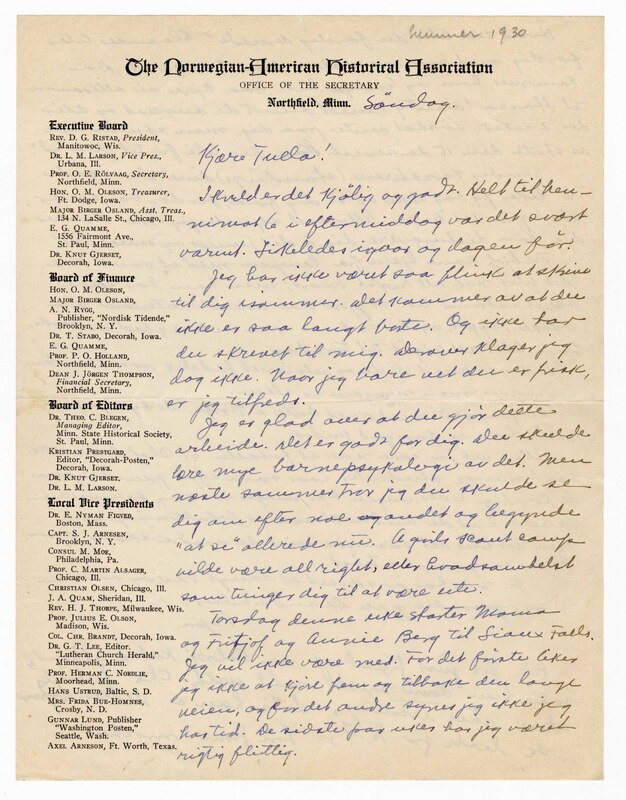 Summer 1930
The Norwegian-American Historical Association
OFFICE OF THE SECRETARY
Northfield, Minn. Söndag.
Executive Board
REV. D. G. RISTAD, President,
Manitowoc, Wis.
DR. L. M. LARSON, Vice Pres.,
Urbana, Ill.
PROF. O. E. RÖLVAAG, Secretary,
Northfield, Minn.
HON. O. M. OLESON, Treasurer,
Ft. Dodge, Iowa.
MAJOR BIRGER OSLAND, Asst. Treas.,
134 N. LaSalle St., Chicago, Ill.
E. G. QUAMME,
1556 Fairmont Ave.,
St. Paul, Minn.
DR. KNUT GJERSET,
Decorah, Iowa.
Board of Finance
HON. O. M. OLESON,
MAJOR BIRGER OSLAND,
A. N. RYGG,
Publisher, "Nordisk Tidende,"
Brooklyn, N. Y.
DR. T. STABO, Decorah, Iowa.
E. G. QUAMME,
PROF. P. O. HOLLAND,
Northfield, Minn.
DEAN J. JÖRGEN THOMPSON,
Financial Secretary,
Northfield, Minn.
Board of Editors
DR. THEO. C. BLEGEN,
Managing Editor,
Minn. State Historical Society,
St. Paul, Minn.
KRISTIAN PRESTGARD,
Editor, "Decorah-Posten,"
Decorah, Iowa.
DR. KNUT GJERSET.
DR. L. M. LARSON.
Local Vice Presidents
DR. E. NYMAN FIGVED,
Boston, Mass.
CAPT. S. J. ARNESEN,
Brooklyn, N. Y.
CONSUL M. MOE,
Philadelphia, Pa.
PROF. C. MARTIN ALSAGER,
Chicago, Ill.
CHRISTIAN OLSEN, Chicago, Ill.
J. A. QUAM, Sheridan, Ill.
REV. H. J. THORPE, Milwaukee, Wis.
PROF. JULIUS E. OLSON,
Madison, Wis.
COL. CHR. BRANDT, Decorah, Iowa.
DR. G. T. LEE, Editor.
"Lutheran Church Herald,"
Minneapolis, Minn.
PROF. HERMAN C. NORDLIE,
Moorhead, Minn.
HANS USTRUD, Baltic, S. D.
MRS. FRIDA BUE-HOMNES,
Crosby, N. D.
GUNNAR LUND, Publisher
"Washington Posten,"
Seattle, Wash.
AXEL ARNESON, Ft. Worth, Texas.
Kjære Tulla!
Ikveld er det kjølig og godt. Helt til hen-
imot 6 i eftermiddag var det svært
varmt. Likeledes igaar og dagen før.
Jeg har ikke været saa flink at skrive
til dig isommer. Det kommer av at du
ikke er saa langt borte. Og ikke har
du skrevet til mig. Derover klager jeg
dog ikke. Naar jeg bare vet du er frisk,
er jeg tilfreds.
Jeg er glad over at du gjør dette
arbeide. Det er godt for dig. Du skulde
lære mye barnepsykologi av det. Men
næste sommer tror jeg du skulde se
dig om efter noe andet og begynde
"at se" allerede nu. A girls scout camp
vilde være all right, eller hvadsomhelst
som tvinger dig til at være ute.
Torsdag denne uke starter Mama
og Fritjof og Annie Berg til Sioux Falls.
Jeg vil ikke være med. For det første liker
jeg ikke at kjøre frem og tilbake den lange
veien, og for det andre synes jeg ikke jeg
har tid. De sidste par uker har jeg været
rigtig flittig.